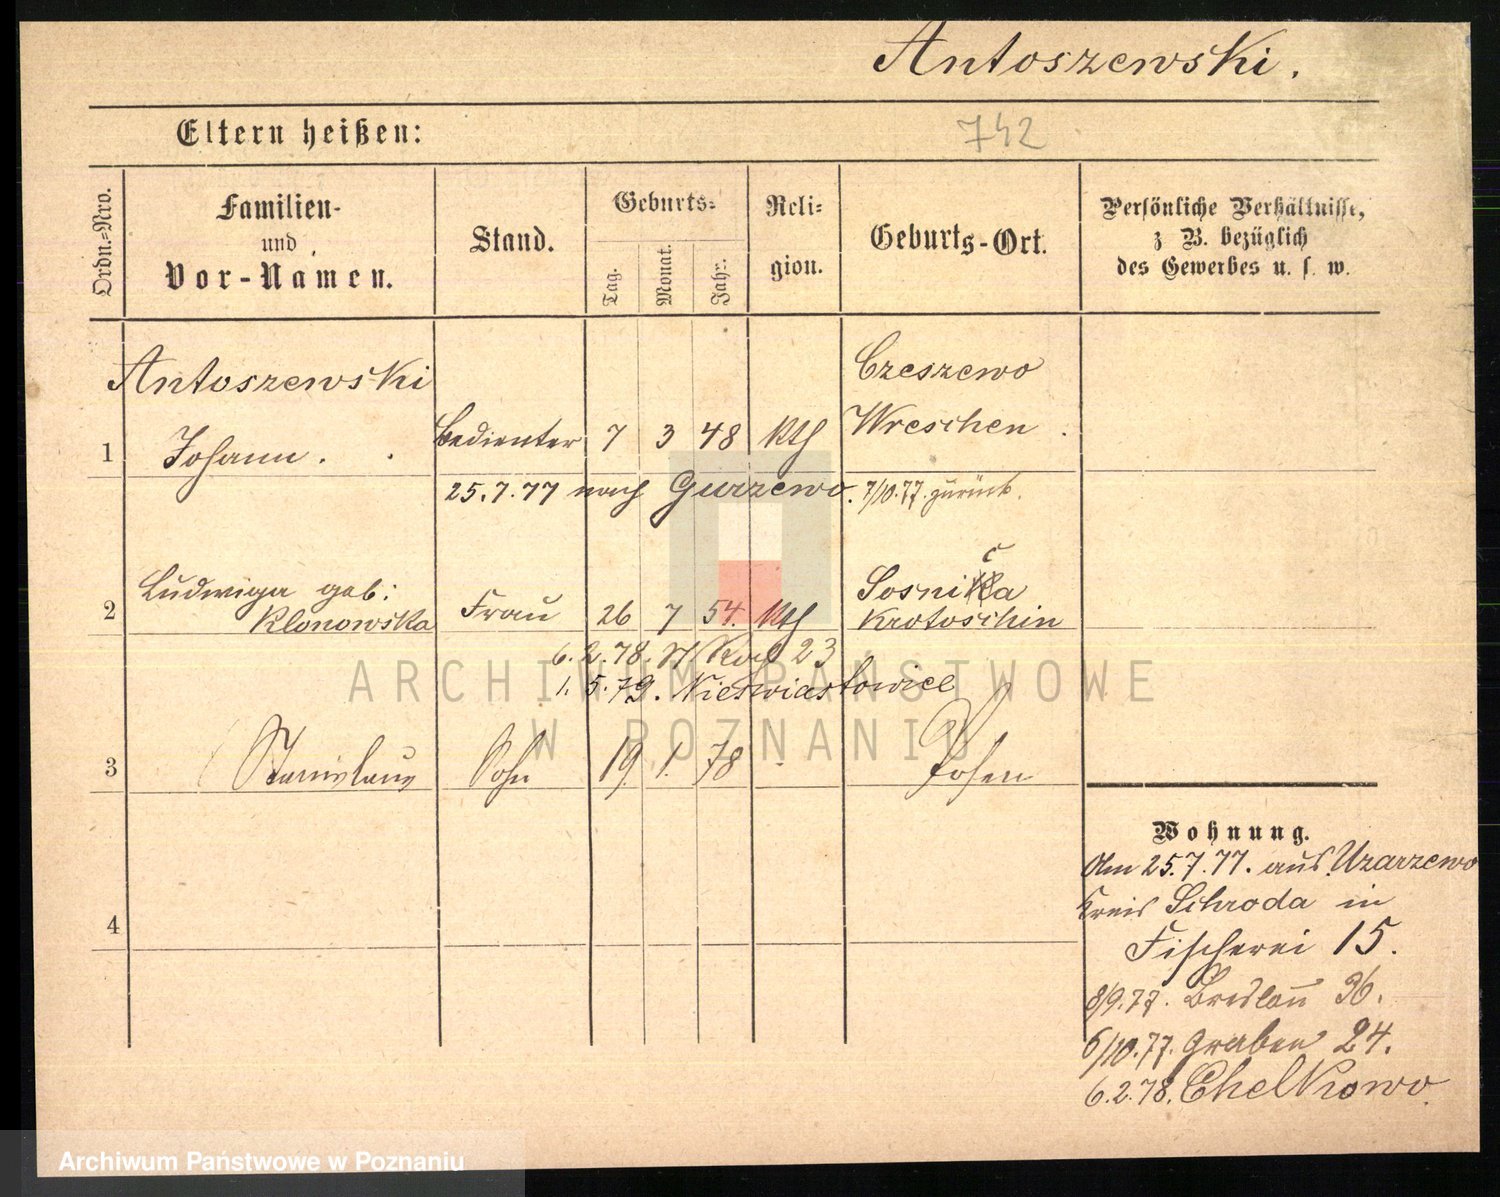 Antoszewski.
Eltern heißen:
742
Ordn.-Nro.
Familien-
und
Vor-Namen.
Stand.
Geburts-
Tag.
Monat.
Jahr.
Reli-
gion.
Geburts-Ort.
Persönliche Verhältnisse,
z B. bezüglich
des Gewerbes u. s. w.
Antoszewski
Czeszewo
1 Johann. Bedienter 7 3 48 Kth Wreschen.
25.7.77 nach Gurzewo. 7/10.77. zurück.
c
Ludwiga geb: Sosnikka
2 Klonowska Frau 26 7 54. Kth Krotoschin
6.2.78. 23
1.5.79. Nieswiastowice
3 Stanislaus Sohn 19. 1. 78 Posen
4
Wohnung.
Am 25.7.77. aus Uzarzewo
Kreis Schroda in
Fischerei 15.
8/9.77. Breslau 36.
6/10.77. Graben 24.
6.2.78. Chelkowo.
ARCHIWUM PAŃSTWOWE
W POZNANIU
Archiwum Państwowe w Poznaniu